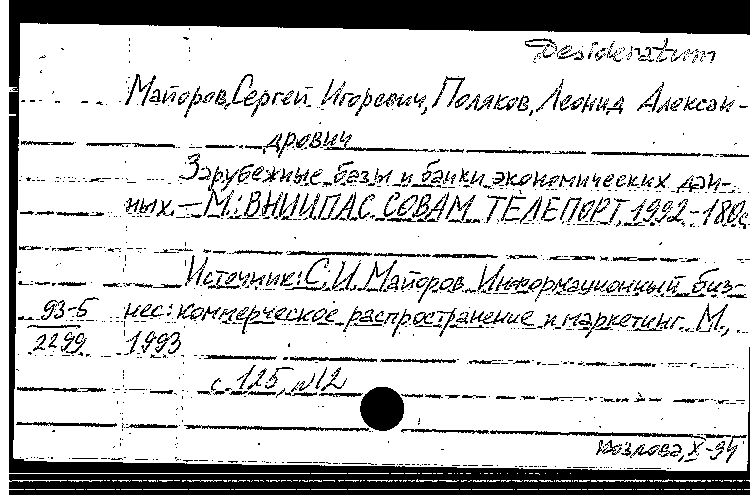 Desideratum
Майоров, Сергей Игоревич, Поляков, Леонид Алексан-
дрович
Зарубежные базы и банки экономических дан-
ных. — М.: ВНИИПАС. СОВАМ ТЕЛЕПОРТ, 1992 - 180с
Источник: С.И. Майоров. Информационный биз-
93-5 нес: коммерческое распространение и маркетинг. М.,
2299 1993
с. 125, №12
Козлова, X-94